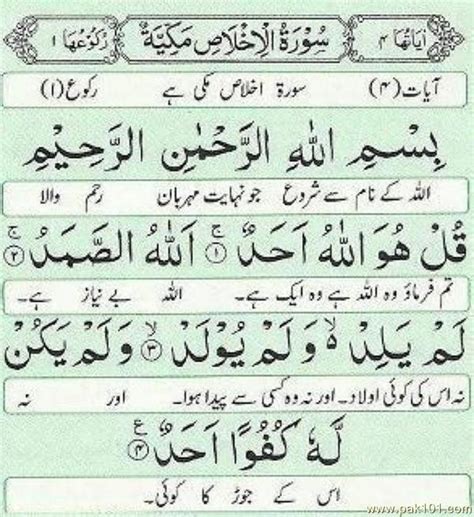 اٰیَاتُهَا ۴ سُوْرَةُ الْاِخْلَاصِ مَکِّیَّةٌ رُکُوْعُهَا ۱
آیات (۴) سورۃ اخلاص مکی ہے رکوع (۱)
بِسْمِ اللهِ الرَّحْمٰنِ الرَّحِیْمِ
اللہ کے نام سے شروع جو نہایت مہربان رحم والا
قُلْ هُوَ اللهُ اَحَدٌ ۚ﴿۱﴾ اَللهُ الصَّمَدُ ۚ﴿۲﴾
تم فرماؤ وہ اللہ ہے وہ ایک ہے۔ اللہ بے نیاز ہے۔
لَمْ یَلِدْ ۙ وَلَمْ یُوْلَدْ ۙ﴿۳﴾ وَلَمْ یَکُنْ
نہ اس کی کوئی اولاد۔ اور نہ وہ کسی سے پیدا ہوا۔ اور نہ
لَّهٗ کُفُوًا اَحَدٌ ﴿۴﴾ ع
اس کے جوڑ کا کوئی۔
www.pak101.com